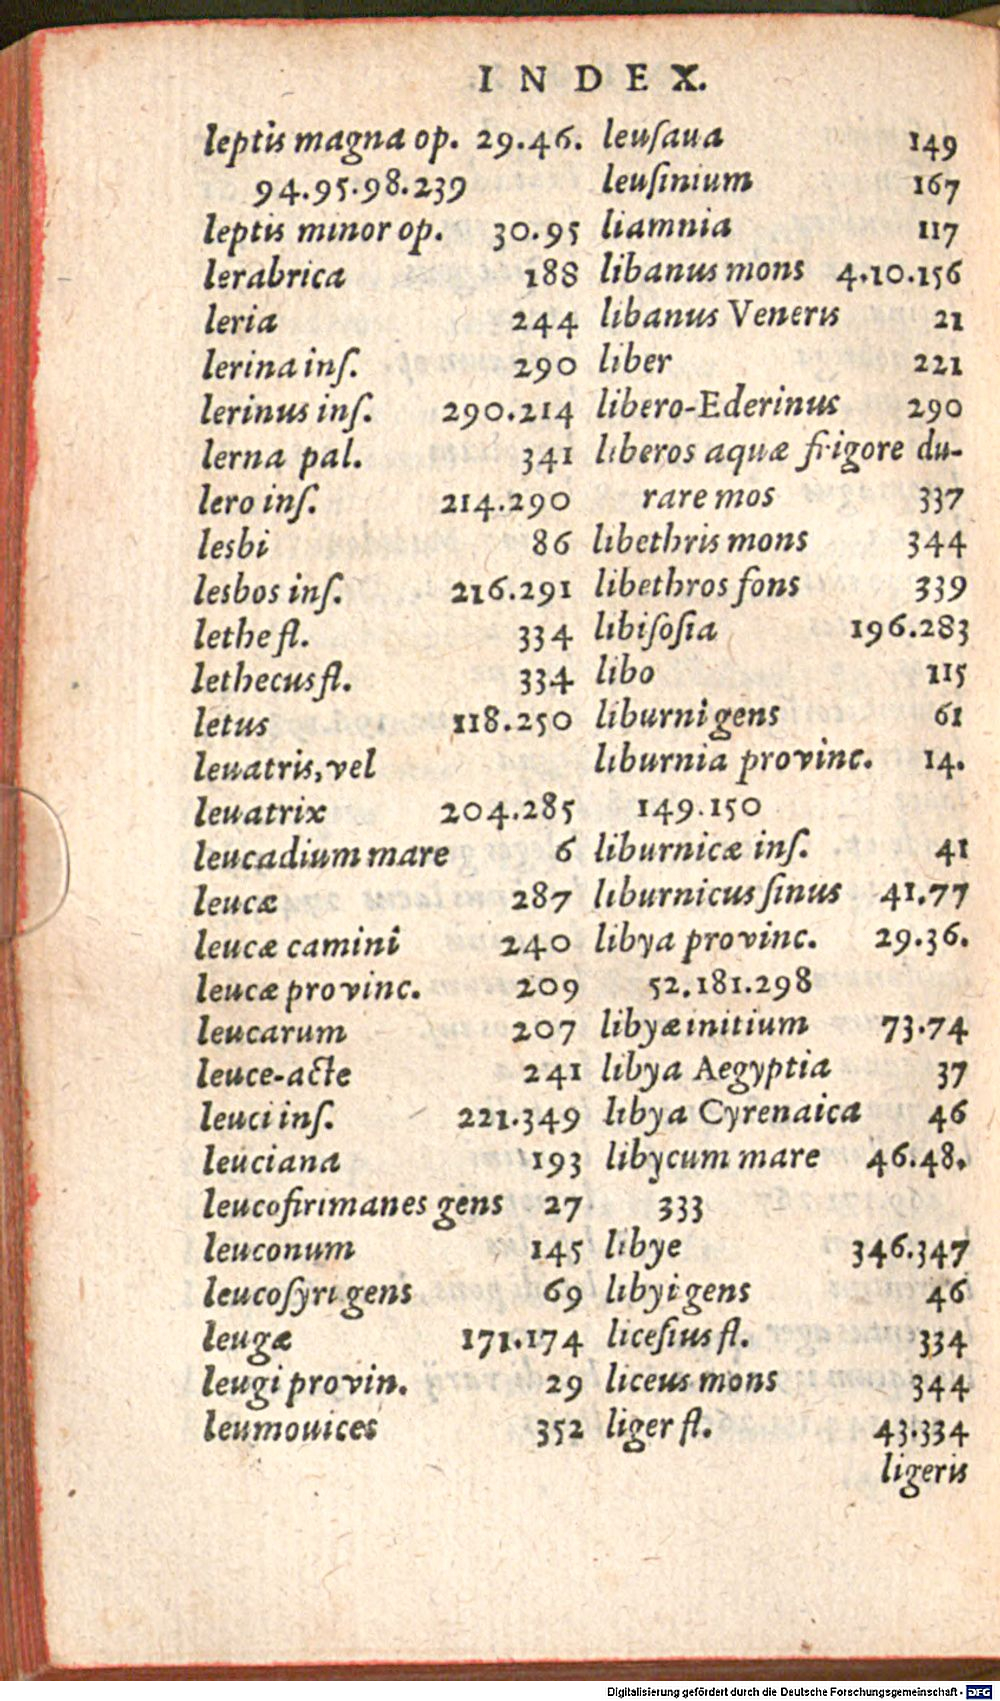 INDEX.
leptis magna op. 29.46.
94.95.98.239
leptis minor op. 30.95
lerabrica 188
leria 244
lerina inſ. 290
lerinus inſ. 290.214
lerna pal. 341
lero inſ. 214.290
lesbi 86
lesbos inſ. 216.291
lethe fl. 334
lethecus fl. 334
letus 118.250
leuatris, vel
leuatrix 204.285
leucadium mare 6
leucæ 287
leucæ camini 240
leucæ provinc. 209
leucarum 207
leuce-acte 241
leuci inſ. 221.349
leuciana 193
leucofirimanes gens 27
leuconum 145
leucoſyri gens 69
leugæ 171.174
leugi provin. 29
leumouices 352
leuſaua 149
leuſinium 167
liamnia 117
libanus mons 4.10.156
libanus Veneris 21
liber 221
libero-Ederinus 290
liberos aquæ frigore du-
rare mos 337
libethris mons 344
libethros fons 339
libiſoſia 196.283
libo 115
liburni gens 61
liburnia provinc. 14.
149.150
liburnicæ inſ. 41
liburnicus ſinus 41.77
libya provinc. 29.36.
52.181.298
libyæ initium 73.74
libya Aegyptia 37
libya Cyrenaica 46
libycum mare 46.48.
333
libye 346.347
libyi gens 46
liceſius fl. 334
liceus mons 344
liger fl. 43.334
ligeris
Digitalisierung gefördert durch die Deutsche Forschungsgemeinschaft - DFG